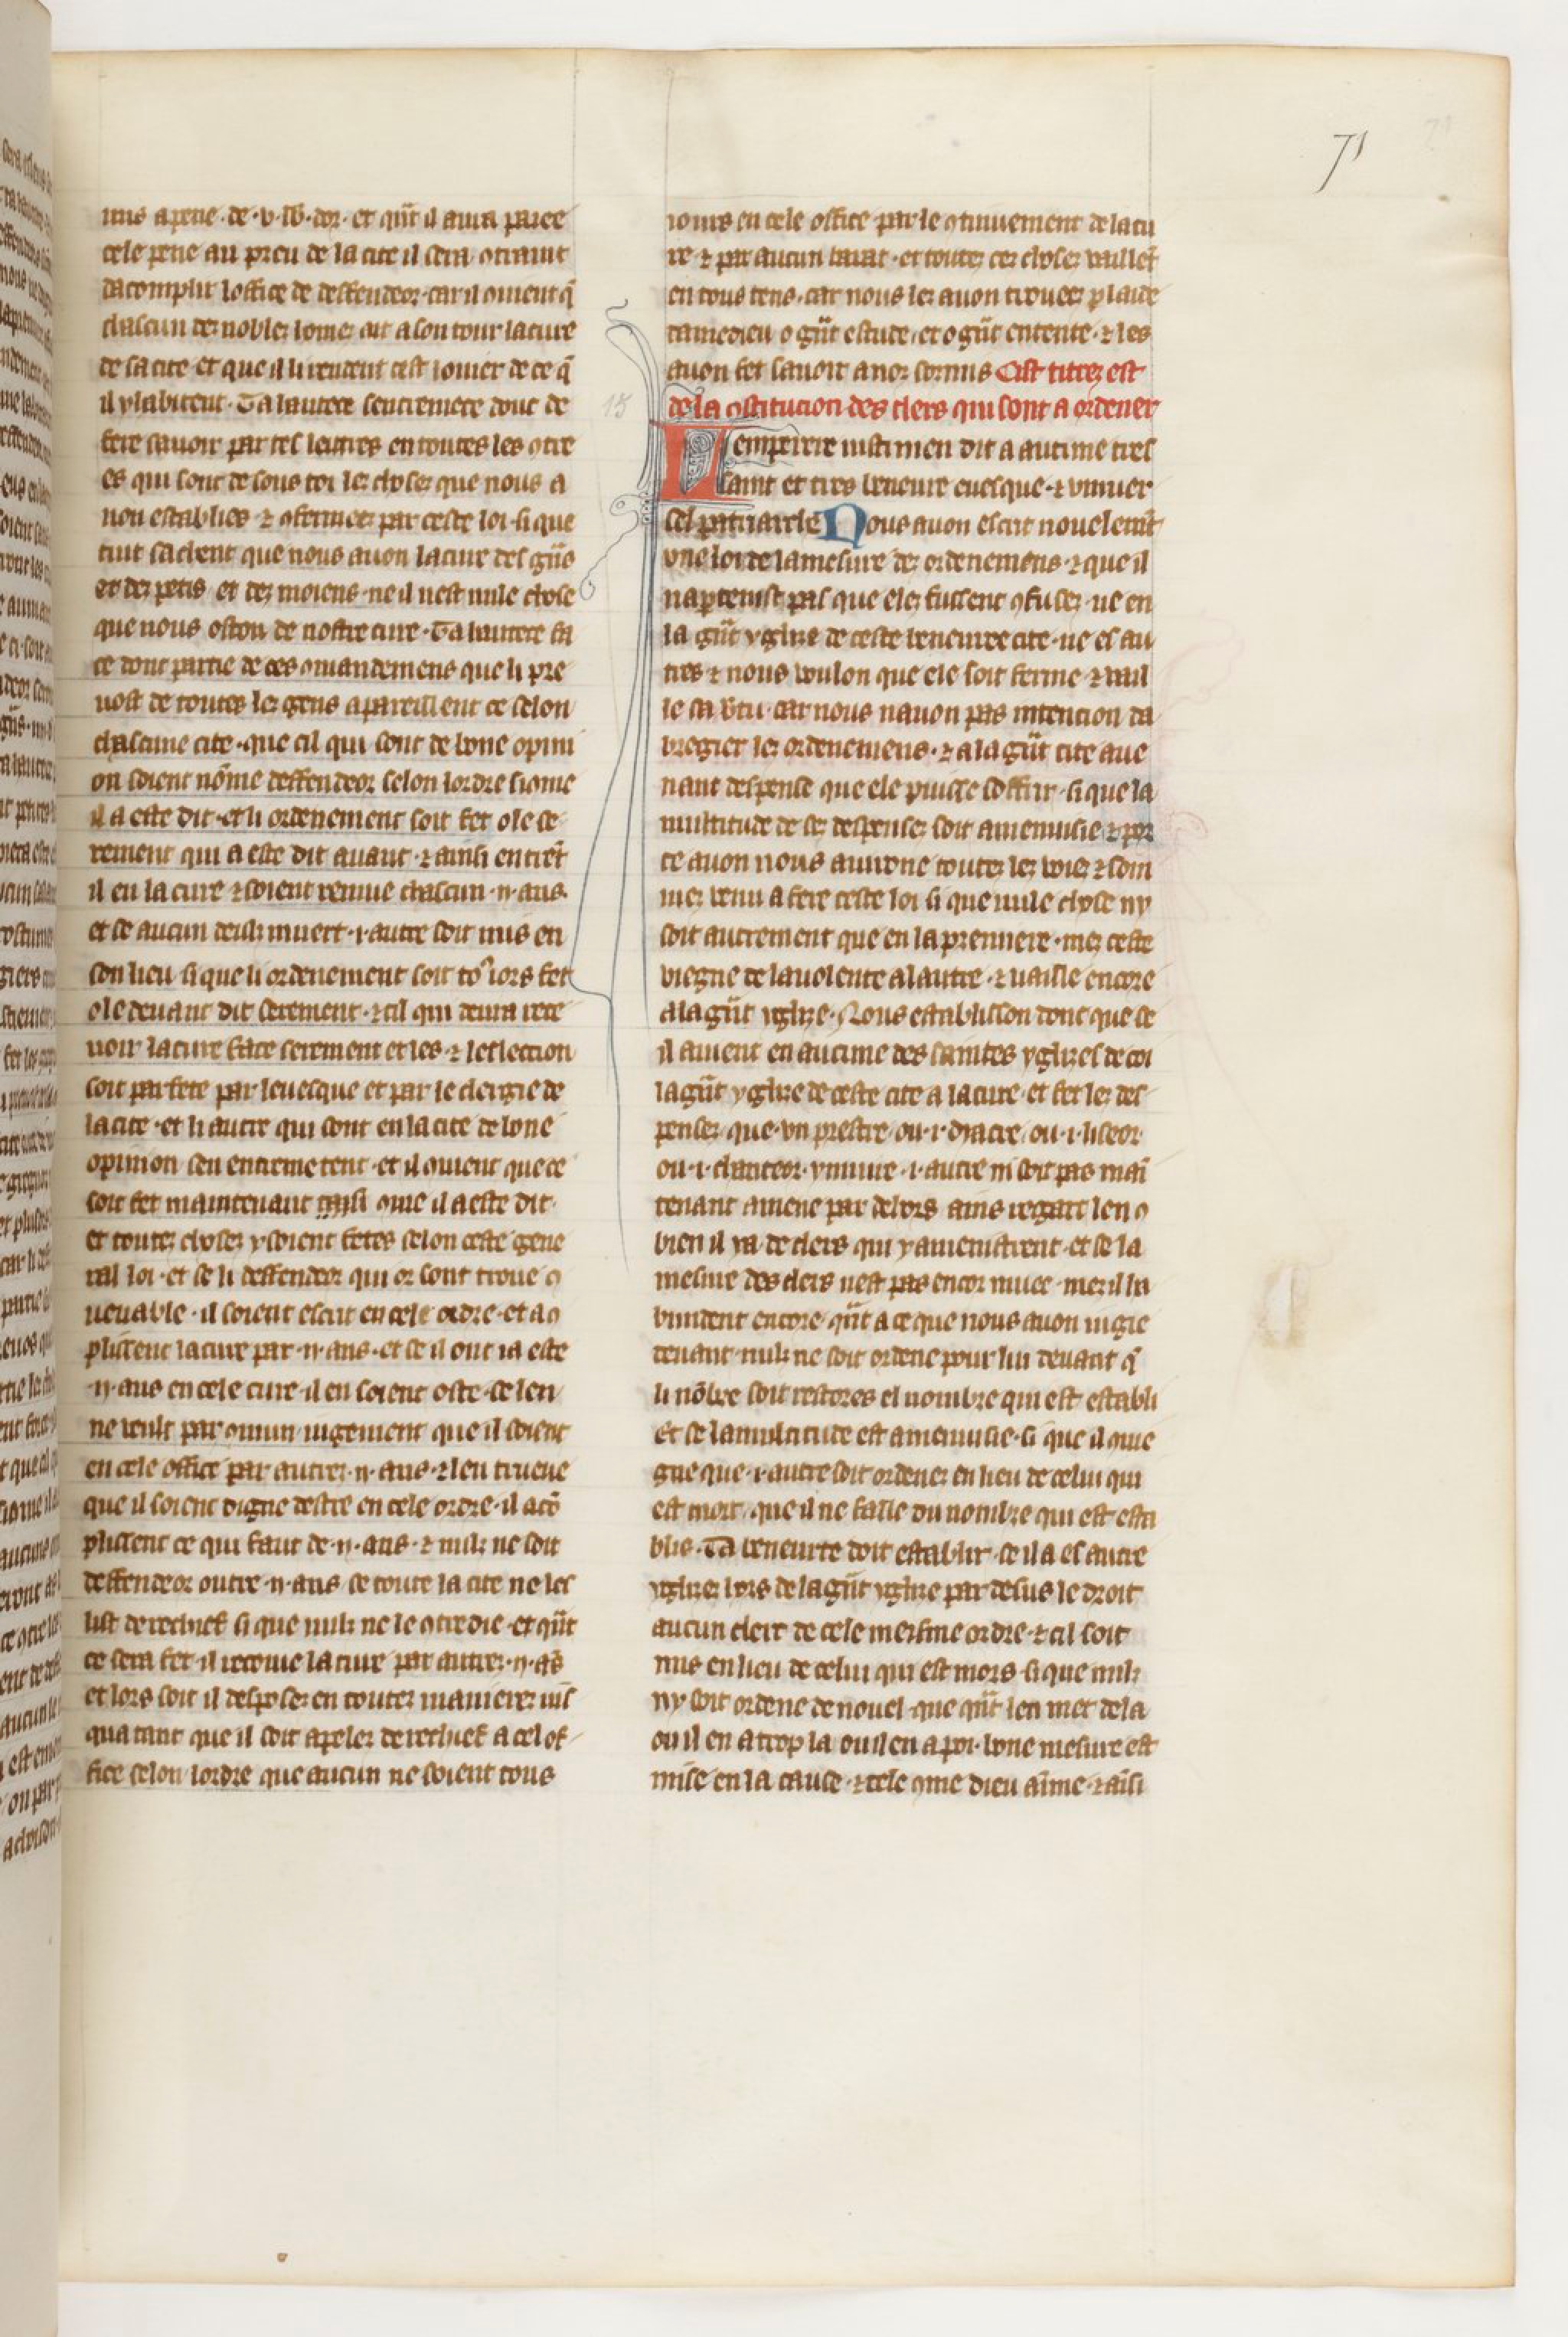 71
mis a peine · de · v · lb · dor · et qñt il aura paiee
cele peine au preu de la cite il sera ɔtraint
dacomplir loffice de deffendeor · car il ɔuient q̃
chascun des nobles homes ait a son tour la cure
de sa cite et que il li rendent cest louier de ce q̃
il y habitent · Ta hautece sentremete donc de
fere sauoir par tes lettres en toutes les ɔtre
es qui sont de sous toi les choses que nous a
uon establies ⁊ ɔfermees par ceste loi · si que
tuit sachent que nous auon la cure des gñs
et des petis et des moiens · ne il nest nule chose
que nous oston de nostre cure · Ta hautece fa
ce dont partie de ces ɔmandemens que li pre
uost de toutes les gens apareillent ce selon
chascune cite · que cil qui sont de bone opini
on soient nõme deffendeor selon lordre si ɔme
il a este dit · et li ordenement soit fet o le se
rement qui a este dit auant · ⁊ ainsi entrẽt
il en la cure ⁊ soient remue chascun · ij · ans ·
et se aucun deuls muert · i · autre soit mis en
son lieu si que li ordenement soit toꝰiors fet
o le deuant dit serement · ⁊ cil qui deura rece
uoir la cure face serement et les · ⁊ lesleccion
soit parfete par leuesque et par le clergie de
la cite · et li autre qui sont en la cite de bone
opinion sen entremetent · et il ɔuient que ce
soit fet maintenant ainsi ɔme il a este dit ·
et toutes choses y soient fetes selon ceste gene
ral loi · et se li deffendeor qui or sont troue ɔ
uenable · il soient escrit en cele ordre · et aɔ
plissent la cure par · ij · ans · et se il ont ia este
· ij · ans en cele cure · il en soient oste · se len
ne veult par ɔmun iugement que il soient
en cele office par autres · ij · ans · ⁊ len trueue
que il soient digne destre en cele ordre · il acõ
plissent ce qui faut de · ij · ans · ⁊ nuls ne soit
deffendeor outre · ij · ans se toute la cite ne les
list de rechief si que nuls ne le ɔtredie · et qñt
ce sera fet · il recoiue la cure par autres · ij · ãs
et lors soit il desposez en toutes manieres ius
qua tant que il soit apelez de rechief a cel of
fice selon lordre que aucun ne soient tous
iours en cele office par le ɔtinuement de la cu
re ⁊ par aucun barat · et toutes ces choses vaillẽt
en tous tens · car nous les auon trouees p laide
damedieu o gñt estude · et o gñt entente · ⁊ les
auon fet sauoir a nos sormis Cist titres est
15
de la ɔstitucion des clers qui sont a ordener
Lempeeire iustinien dit a autime tres
saint et tres beneure euesque · ⁊ vniuer
sel patriarche Nous auon escrit nouelemẽt
vne loi de la mesure des ordenemens · ⁊ que il
napartenist pas que eles fussent ɔfuses · ne en
la gñt yglise de ceste beneuree cite · ne es au
tres ⁊ nous voulon que ele soit ferme ⁊ vail
le sa v̓tu · car nous nauon pas intencion da
bregier les ordenemens · ⁊ a la gñt cite aue
nant despense que ele puisse soffrir · si que la
multitude de ses despenses soit amenuisie ⁊ por
ce auon nous auirone toutes les voies ⁊ som
mes venu a fere ceste loi si que nule chose ny
soit autrement que en la premiere · mes ceste
viegne de la volente a lautre · ⁊ vaille encore
a la gñt yglise · Nous establisson dont que se
il auient en aucune des saintes yglises de coi
la gñt yglise de ceste cite a la cure · et fet les des
penses · que · vn prestre ou · i · dyacre / ou · i · liseor
ou · i · chanteor · y muire · i · autre ni soit pas maĩ
tenant amene par dehors ains regart len ɔ
bien il y a de clers qui y amenistrent · et se la
mesure des clers nest pas encor muee · mes il ha
bundent encore · qñt a ce que nous auon iugie
deuant · nuls ne soit ordene pour lui deuant q̃
li nõbre soit restores el nombre qui est establi
Et se la multitude est amenuisie · si que il ɔuie
gne que · i · autre soit ordenez en lieu de celui qui
est mort / que il ne faille du nombre qui est esta
blis · Ta beneurte doit establir · se il a es autre
yglises hors de la gñt yglise par desus le droit
aucun clerc de cele meisme ordre · ⁊ cil soit
mis en lieu de celui qui est mors · si que nuls
ny soit ordene de nouel · que qñt len met de la
ou il en a trop la ou il en a poi · bone mesure est
mise en la cause · ⁊ cele ɔme dieu aime · ⁊ aĩsi